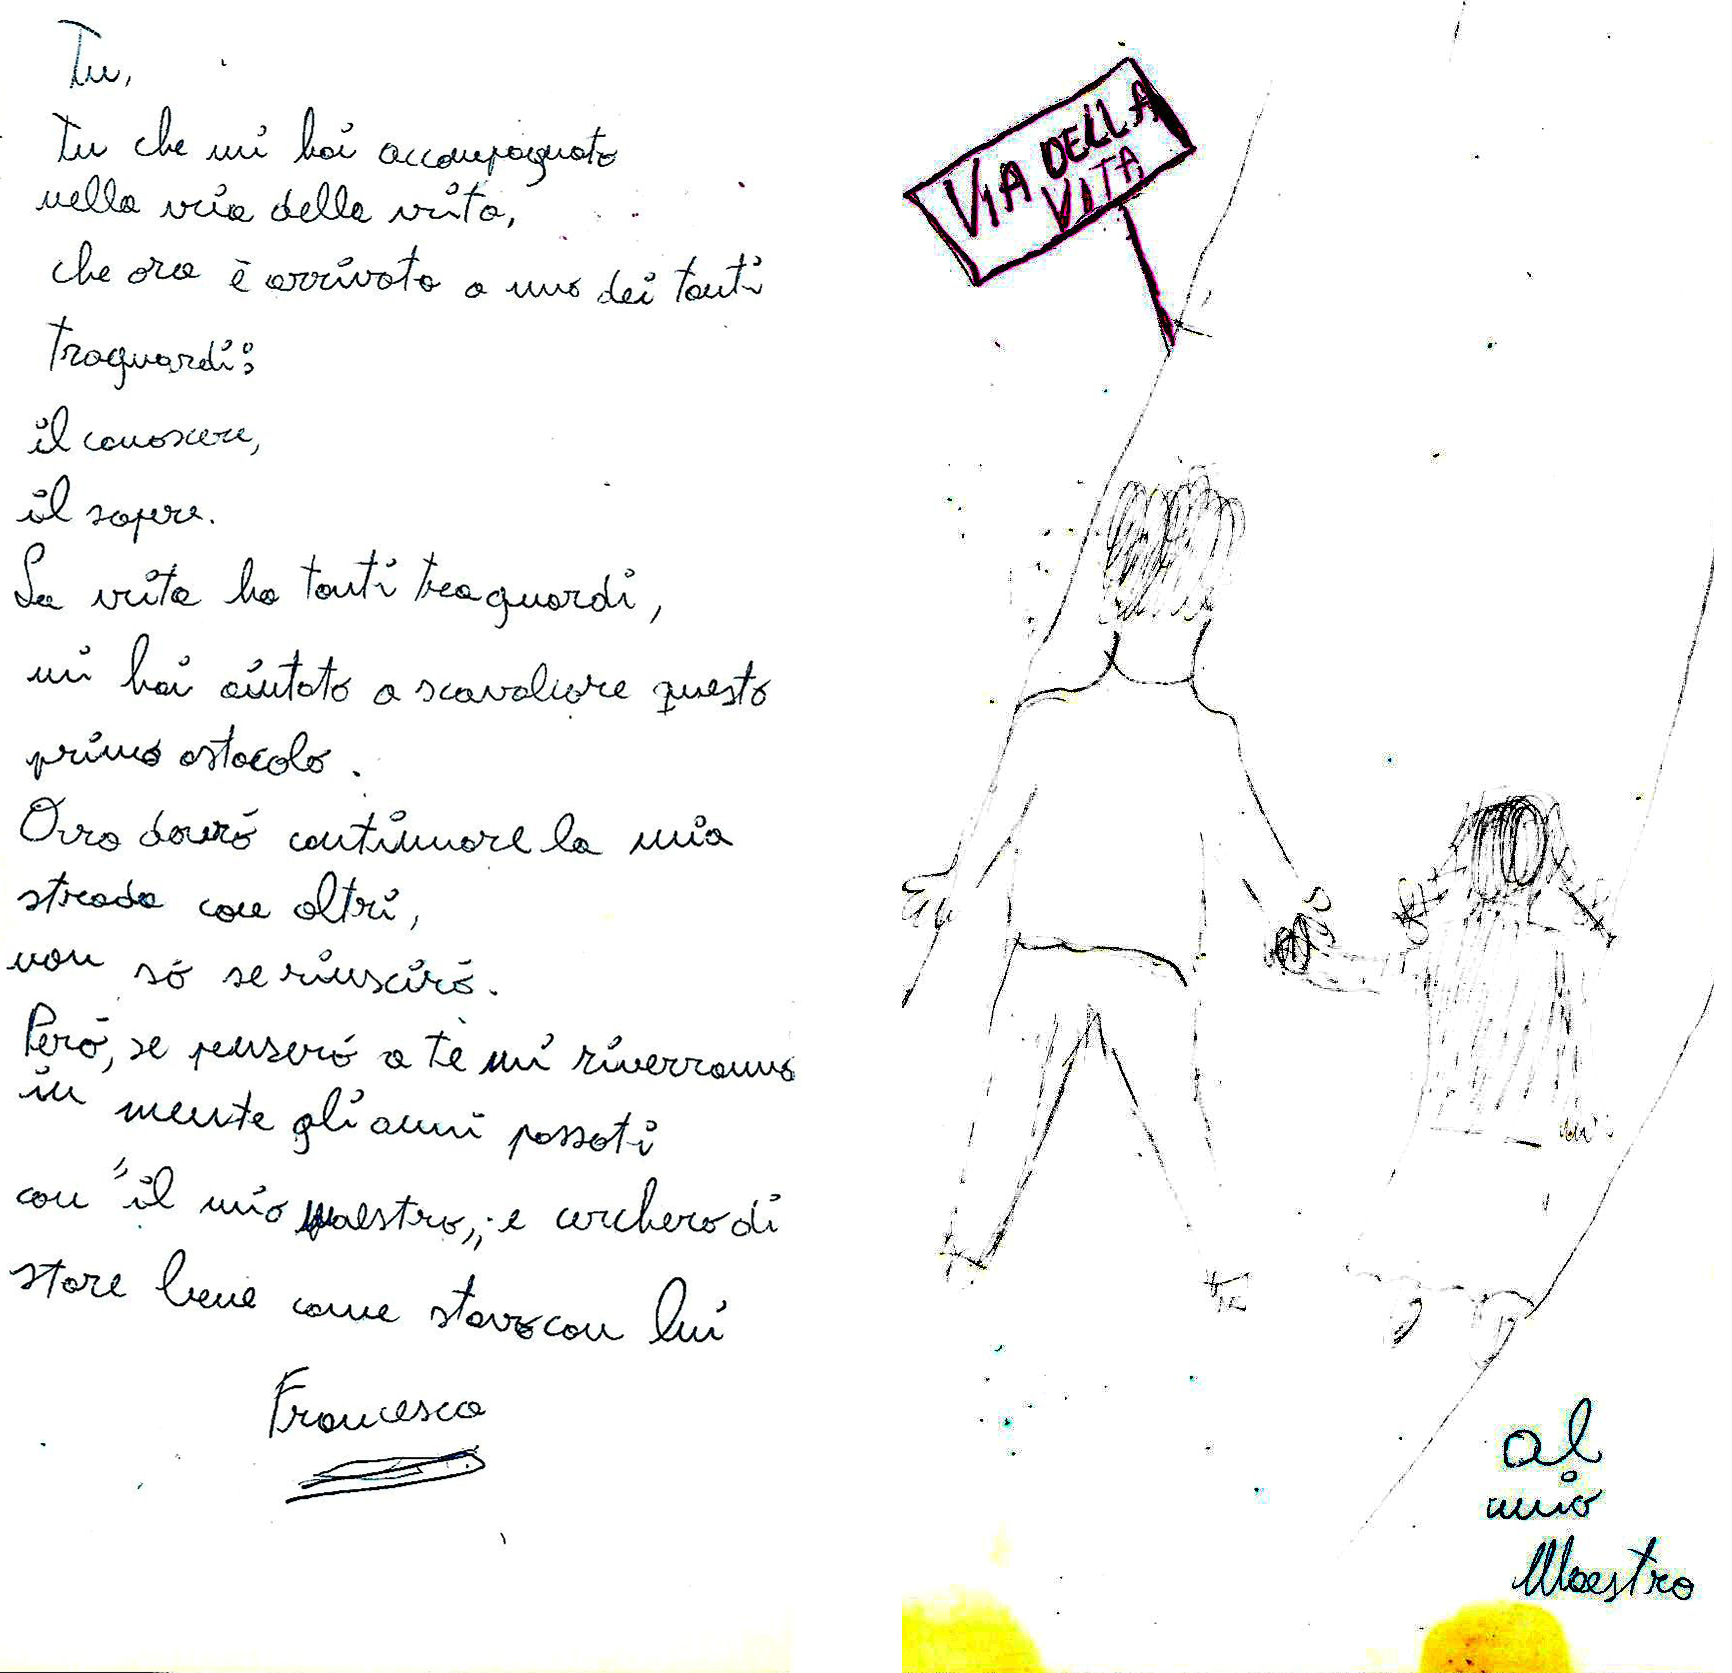 Tu,
Tu che mi hai accompagnato
nella via della vita,
che ora è arrivata a uno dei tanti
traguardi:
il conoscere,
il sapere.
La vita ha tanti traguardi,
mi hai aiutato a scavalcare questo
primo ostacolo.
Ora dovró continuare la mia
strada con altri,
non só se riusciró.
Peró, se penseró a tè mi riverranno
in mente gli anni passati
con "il mio maestro,, e cercheró di
stare bene come stavo con lui
Francesca
VIA DELLA
VITA
al
mio
Maestro